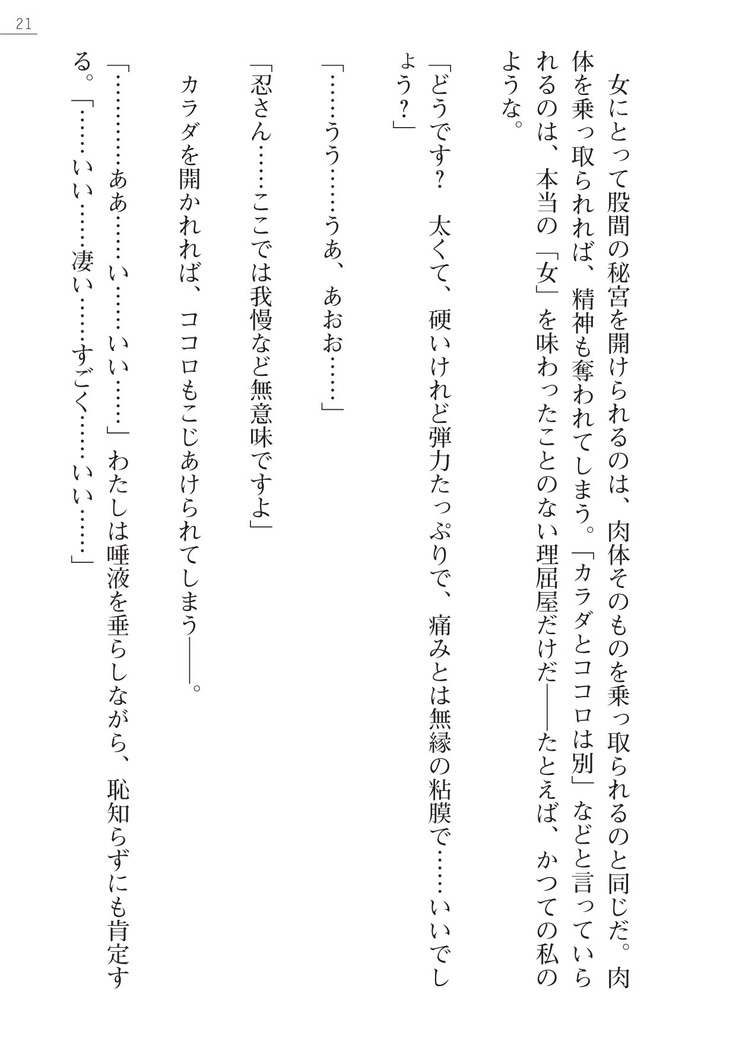 21
　女にとって股間の秘宮を開けられるのは、肉体そのものを乗っ取られるのと同じだ。肉
体を乗っ取られれば、精神も奪われてしまう。「カラダとココロは別」などと言っていら
れるのは、本当の「女」を味わったことのない理屈屋だけだ――たとえば、かつての私の
ような。
「どうです？　太くて、硬いけれど弾力たっぷりで、痛みとは無縁の粘膜で……いいでし
ょう？」
「……うう……うあ、あおお……」
「忍さん……ここでは我慢など無意味ですよ」
　カラダを開かれれば、ココロもこじあけられてしまう――。
「…………ああ……い……いい……」わたしは唾液を垂らしながら、恥知らずにも肯定す
る。「……いい……凄い……すごく……いい……」